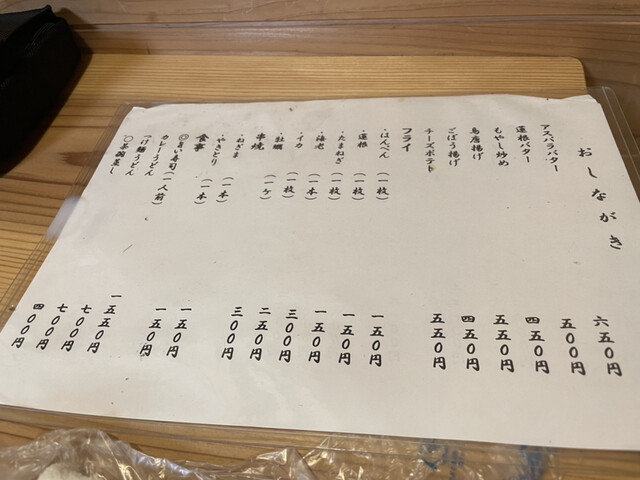 おしながき
アスパラバター 六五〇円
蓮根バター 五〇〇円
もやし炒め 四五〇円
鳥唐揚げ 五五〇円
ごぼう揚げ 四五〇円
チーズポテト 五五〇円
フライ
・はんぺん（一枚） 一五〇円
・蓮根（一枚） 一五〇円
・たまねぎ（一枚） 一五〇円
・海老（一本） 三〇〇円
・イカ（一枚） 二五〇円
・牡蠣（一ケ） 三〇〇円
串焼
・ねぎま（一本） 一五〇円
・やきとり（一本） 一五〇円
食事
◎旨い寿司（一人前） 一五五〇円
カレーうどん 七〇〇円
つけ麺うどん 七〇〇円
〇茶碗蒸し 四〇〇円